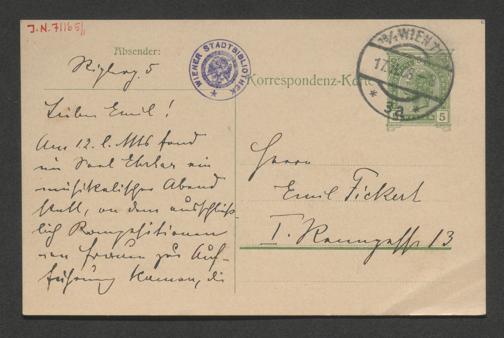 J.N. 7116511
Absender:
5
WIENER STADTBIBLIOTHEK
Korrespondenz-Karte
WIEN
17.
3a
5
Lieben Emil!
Am 12. l. Mts fand
im Saal Ehrbar ein
musikalischer Abend
statt, an dem ausschließ-
lich Kompositionen
von Frauen zur Auf-
führung kamen, die
Herrn
Emil Fickert
I. Renngasse 13